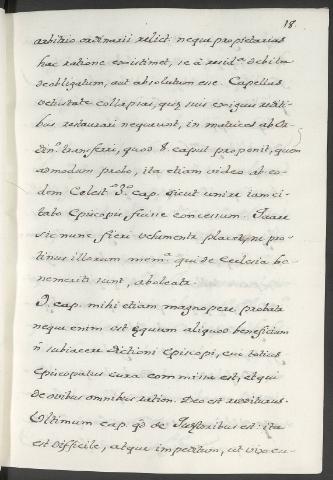 18.
arbitrio ordinarii relict. neque proprietarius
hac ratione existimet, se à resid.ª debita
deobligatum, aut absolutum esse. Capellas
vetustate collapsas, quæ suis exiguis redit.
bus restaurari nequeunt, in matrices ab Or-
din.º transferri, quod 8. caput proponit, quem
admodum probo, ita etiam video ab eo-
dem Celeit. cap. sicut unire iam ci-
tato Episcopis fuisse concessum.
sic nunc fieri vehementer placet, ne pro-
tinus illorum mem.ª qui de Ecclesia be-
nemeriti sunt, aboleatur.
9. cap. mihi etiam magnopere probatur
neque enim est æquum aliquod beneficium
ñ subiacere dictioni Episcopi, cui totius
Episcopatus cura commissa est, et qui
de ovibus omnibus ration. Deo est redditurus.
Ultimum cap. qd de est: ita
est difficile, atque impeditum, ut vix eu-